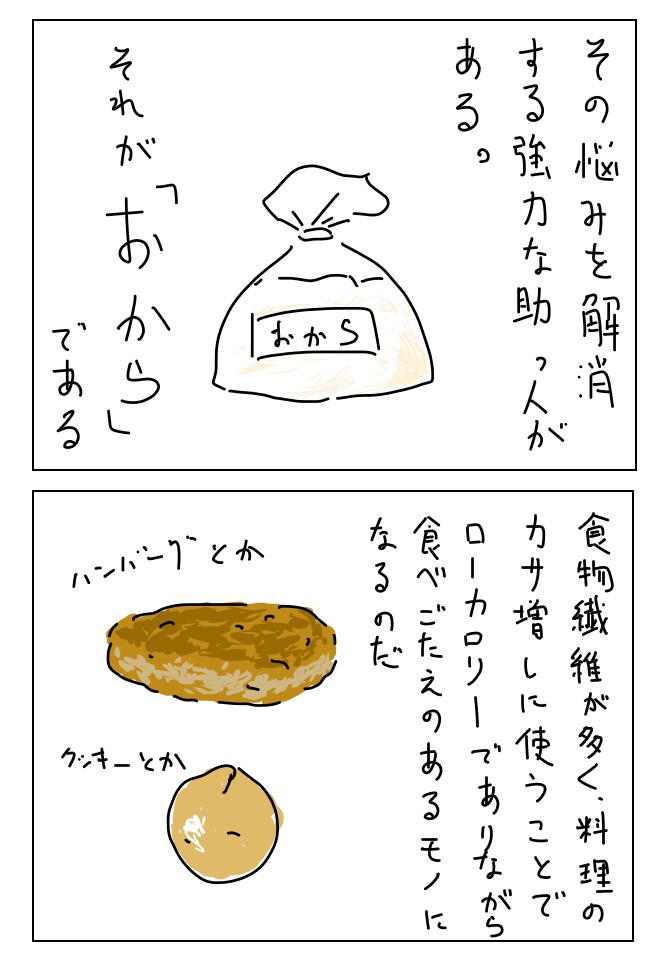 その悩みを解消
する強力な助っ人が
ある。
おから
それが「おから」
である
食物繊維が多く、料理の
カサ増しに使うことで
ローカロリーでありながら
食べごたえのあるモノに
なるのだ
ハンバーグとか
クッキーとか